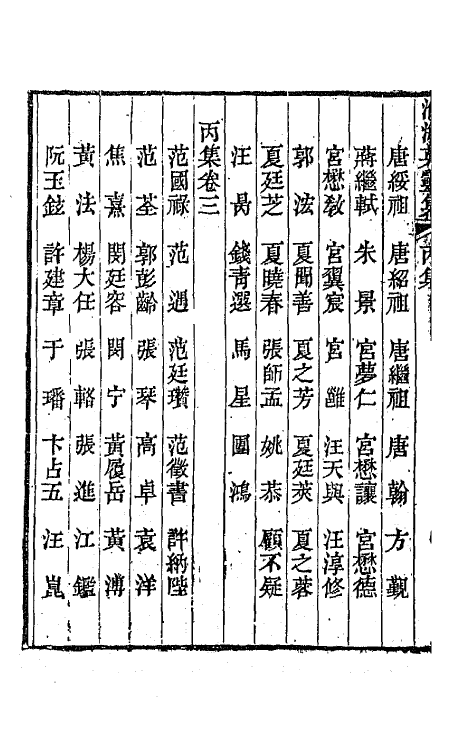 淮海英靈集 丙集
唐綏祖 唐紹祖 唐繼祖 唐翰 方觐
蔣繼軾 朱景 宮夢仁 宮懋讓 宮懋德
宮懋敎 宮翼宸 宮雝 汪天與 汪淳修
郭法 夏聞善 夏之芳 夏廷莢 夏之蓉
夏廷芝 夏曉春 張師孟 姚恭 顧不疑
汪昺 錢靑選 馬星 團鴻
丙集卷三
范國祿 范遇 范廷瓚 范徵書 許納陛
范荃 郭彭齡 張琴 高卓 袁洋
焦熹 閔廷容 閔宁 黃履岳 黃溥
黃法 楊大任 張輅 張進 江鑑
阮玉鉉 許建章 于璠 卞占五 汪崑